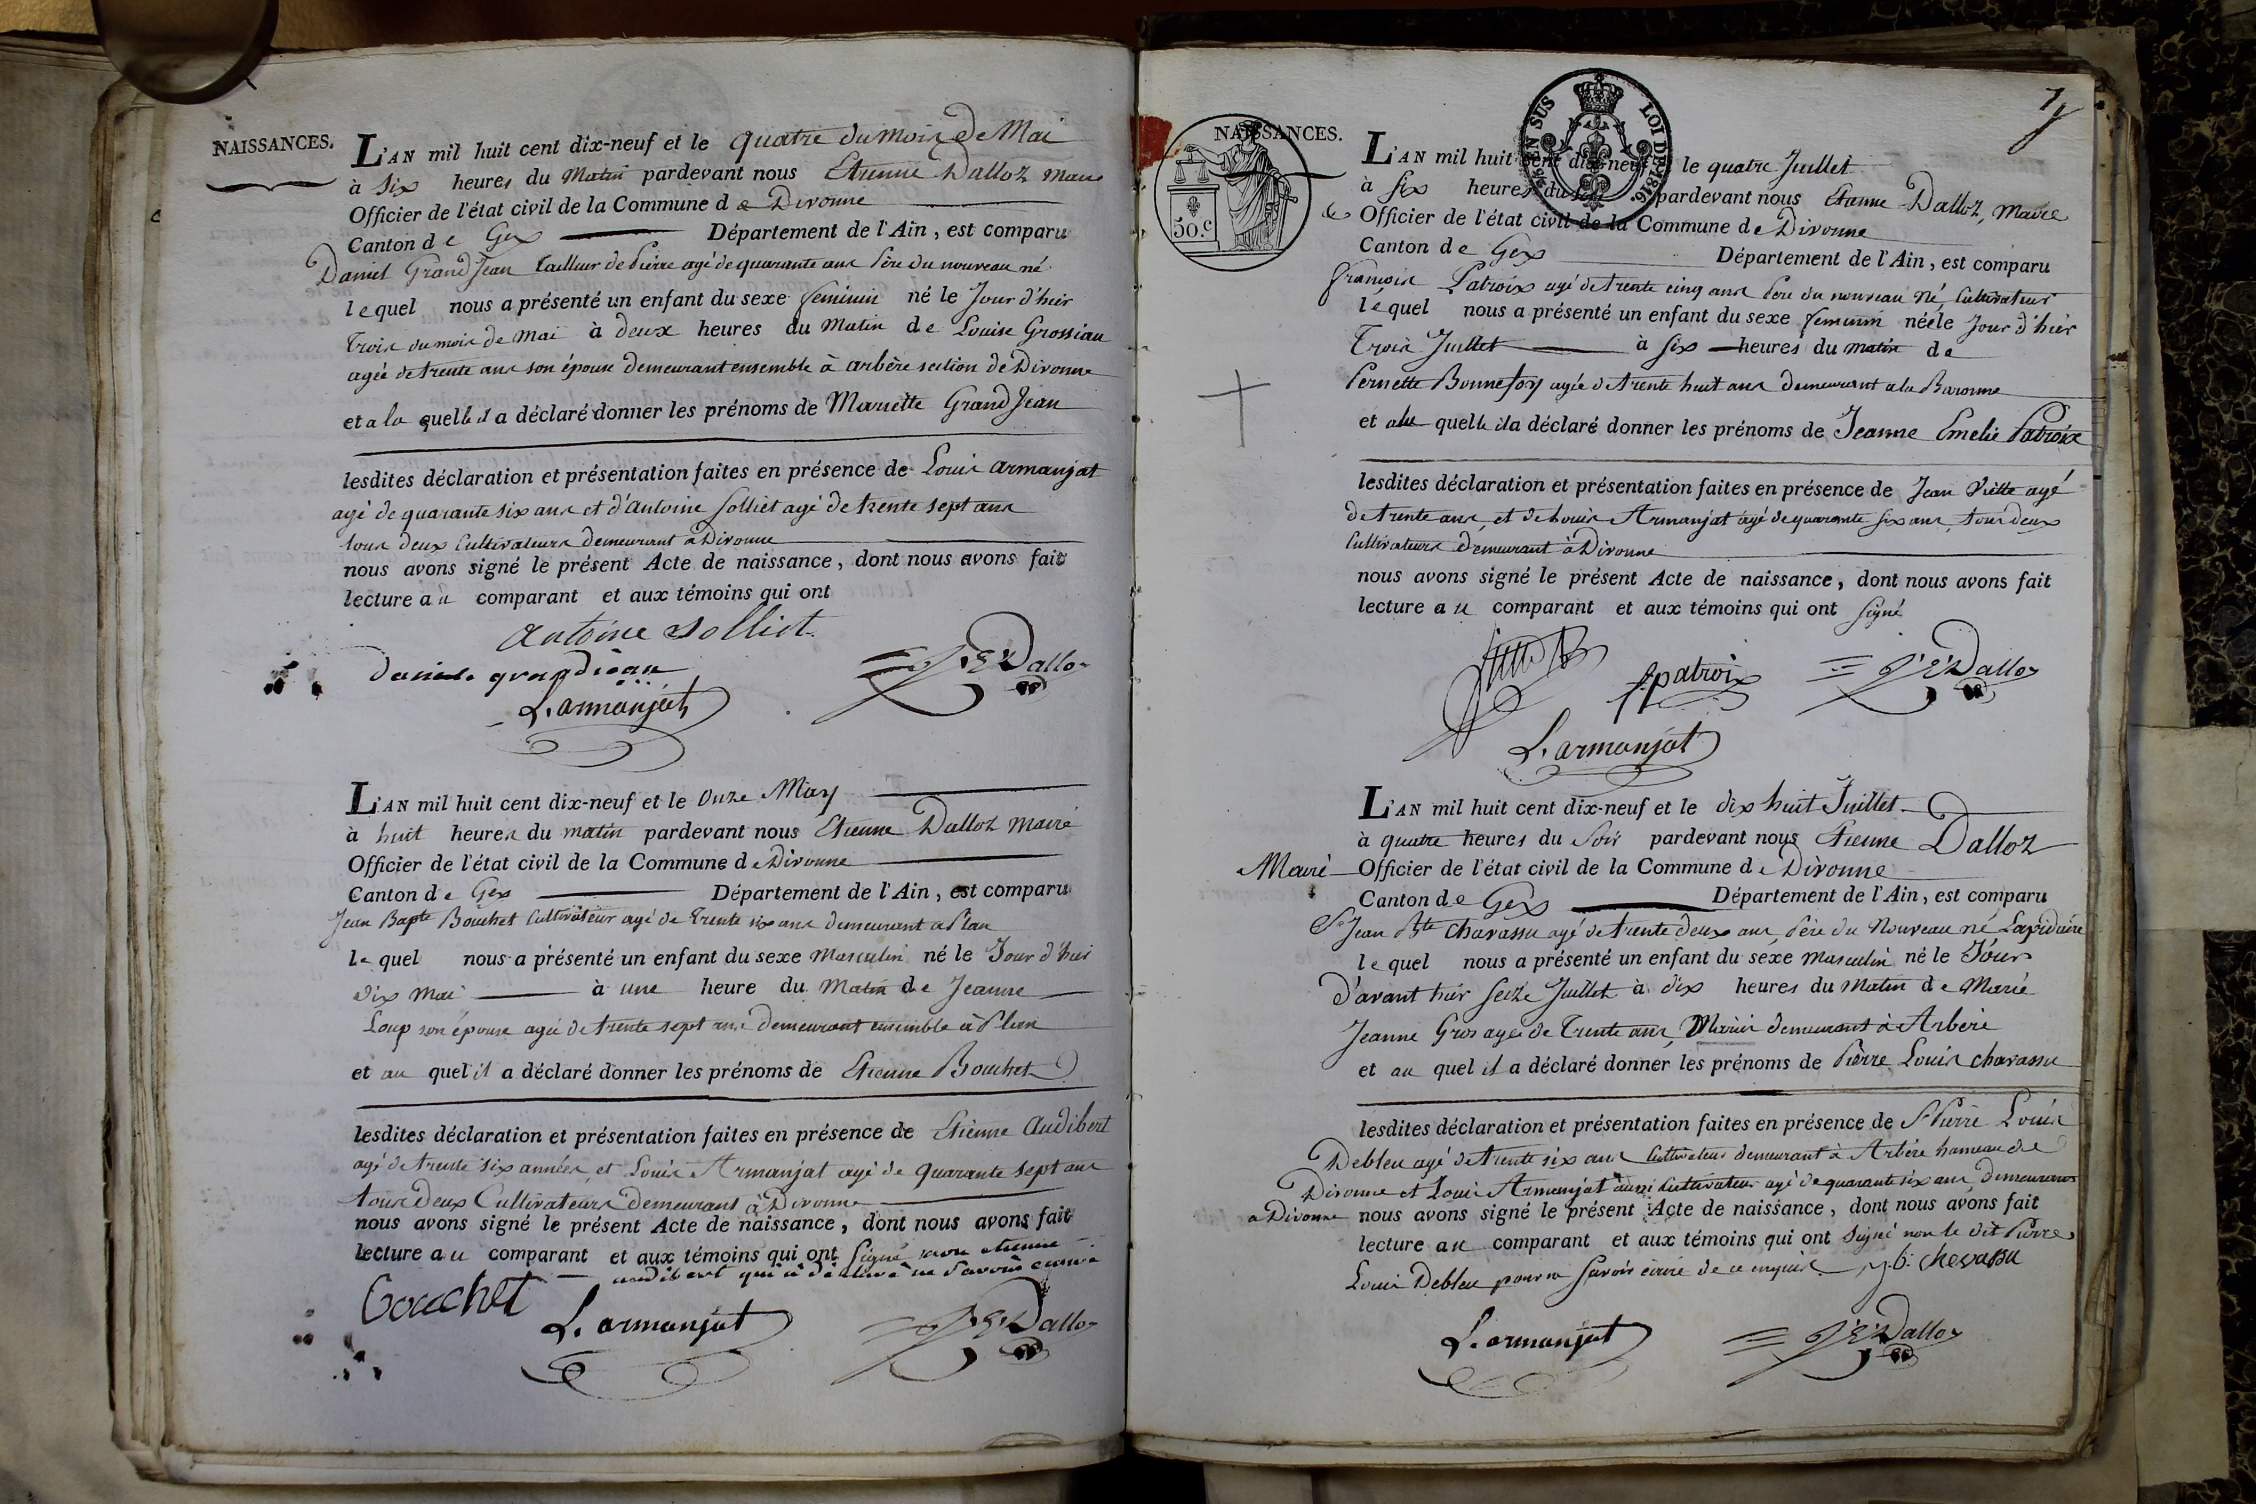 NAISSANCES.
L'AN mil huit cent dix-neuf et le quatre du mois de Mai
à six heures du Matin pardevant nous Etienne Dalloz maire
Officier de l'état civil de la Commune de Divonne
Canton de Gex Département de l'Ain, est comparu
Daniel GrandJean tailleur de Pierre agé de quarante ans Père du nouveau né
lequel nous a présenté un enfant du sexe feminin né le Jour d'hier
Trois du mois de Mai à deux heures du Matin de Louise Grossiau
agée de trente ans son épouse demeurant ensemble à arbère section de Divonne
et a la quelle il a déclaré donner les prénoms de Mariette GrandJean
lesdites déclaration et présentation faites en présence de Louis armanjat
agé de quarante six ans et d'antoine Solliet agé de trente sept ans
tous deux Cultivateurs demeurant à Divonne
nous avons signé le présent Acte de naissance, dont nous avons fait
lecture au comparant et aux témoins qui ont
antoine Solliet
daniel grandjean
J. E. Dalloz
L. armanjat
L'AN mil huit cent dix-neuf et le onze May
à huit heures du matin pardevant nous Etienne Dalloz Maire
Officier de l'état civil de la Commune de Divonne
Canton de Gex Département de l'Ain, est comparu
Jean Bapte Bouchet Cultivateur agé de Trente six ans demeurant a Plan
lequel nous a présenté un enfant du sexe Masculin né le Jour d'hier
dix Mai à une heure du Matin de Jeanne
Loup son épouse agée de trente sept ans demeurant ensemble à Plan
et au quel il a déclaré donner les prénoms de Etienne Bouchet
lesdites déclaration et présentation faites en présence de Etienne Audibert
agé de trente six années et Louis Armanjat agé de quarante sept ans
tous deux Cultivateurs demeurant à Divonne
nous avons signé le présent Acte de naissance, dont nous avons fait
lecture au comparant et aux témoins qui ont signé non etienne
audibert qui a déclaré ne savoir
Bouchet
L. armanjat
J. E. Dalloz
7
NAISSANCES.
50.c
EN SUS
LOI DE 1816.
L'AN mil huit cent dix-neuf le quatre Juillet
à six heures du pardevant nous Etienne Dalloz, Maire
Officier de l'état civil de la Commune de Divonne
Canton de Gex Département de l'Ain, est comparu
françois Patroix agé de trente cinq ans Père du nouveau né, Cultivateur
lequel nous a présenté un enfant du sexe feminin née le Jour d'hier
Trois Juillet à six heures du matin de
Pernette Bonnefoy agée de trente huit ans demeurant a la Baronne
et a la quelle il a déclaré donner les prénoms de Jeanne Emelie Patroix
lesdites déclaration et présentation faites en présence de Jean Viette agé
de trente ans, et de Louis Armanjat agé de quarante six ans, tous deux
Cultivateurs demeurant à Divonne
nous avons signé le présent Acte de naissance, dont nous avons fait
lecture au comparant et aux témoins qui ont signé
fpatroix
J. E. Dalloz
L. armanjat
L'AN mil huit cent dix-neuf et le dix huit Juillet
à quatre heures du Soir pardevant nous Etienne Dalloz
Maire Officier de l'état civil de la Commune de Divonne
Canton de Gex Département de l'Ain, est comparu
Sr Jean Bte Chavassu agé de trente deux ans, Père du Nouveau né Lapidaire
lequel nous a présenté un enfant du sexe Masculin né le Jour
d'avant hier Seize Juillet à dix heures du Matin de Marie
Jeanne Gros agée de Trente ans, Mariés demeurant à Arbère
et au quel il a déclaré donner les prénoms de Pierre Louis Chavassu
lesdites déclaration et présentation faites en présence de Sr Pierre Louis
Debleu agé de trente six ans Cultivateur demeurant à Arbère hameau de
Divonne et Louis Armanjat aussi Cultivateur agé de quarante six ans, demeurant
a Divonne nous avons signé le présent Acte de naissance, dont nous avons fait
lecture au comparant et aux témoins qui ont signé non le dit Pierre
Louis Debleu pour ne savoir écrire de ce enquis j. b. chevassu
L. armanjat
J. E. Dalloz